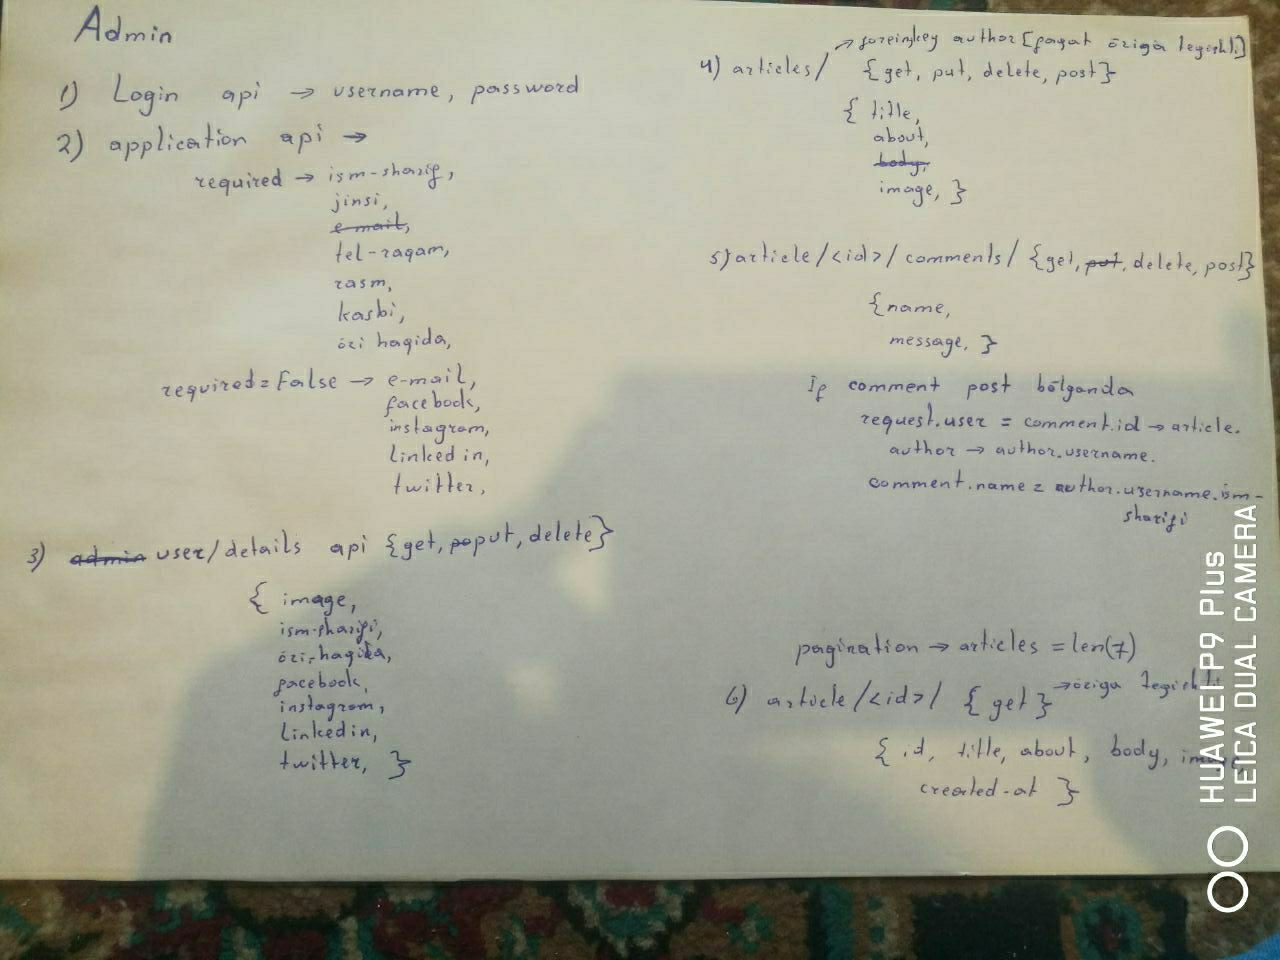 Admin
1) Login api → username, password
2) application api →
required → ism-sharif,
jinsi,
e-mail,
tel-raqam,
rasm,
kasbi,
õzi haqida,
required=False → e-mail,
facebook,
instagram,
linked in,
twitter,
3) admin user/details api {get, put, delete}
{ image,
ism-sharifi,
õzi-haqida,
facebook,
instagram,
linkedin,
twitter, }
→ foreinkey author [faqat õziga tegishli]
4) articles/ {get, put, delete, post}
{ title,
about,
body,
image, }
5) article/<id>/comments/ {get, put, delete, post}
{name,
message, }
If comment post bõlganda
request.user = comment.id → article.
author → author.username.
comment.name = author.username.ism-
sharifi
pagination → articles = len(7)
6) article/<id>/ { get } → õziga tegishli
{ id, title, about, body, image,
created-at }
HUAWEI P9 Plus
LEICA DUAL CAMERA